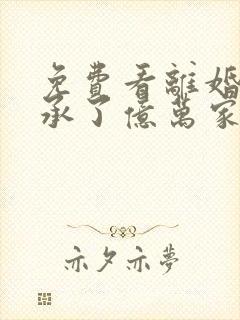 免費看離婚
承了億萬家
亦夕亦夢